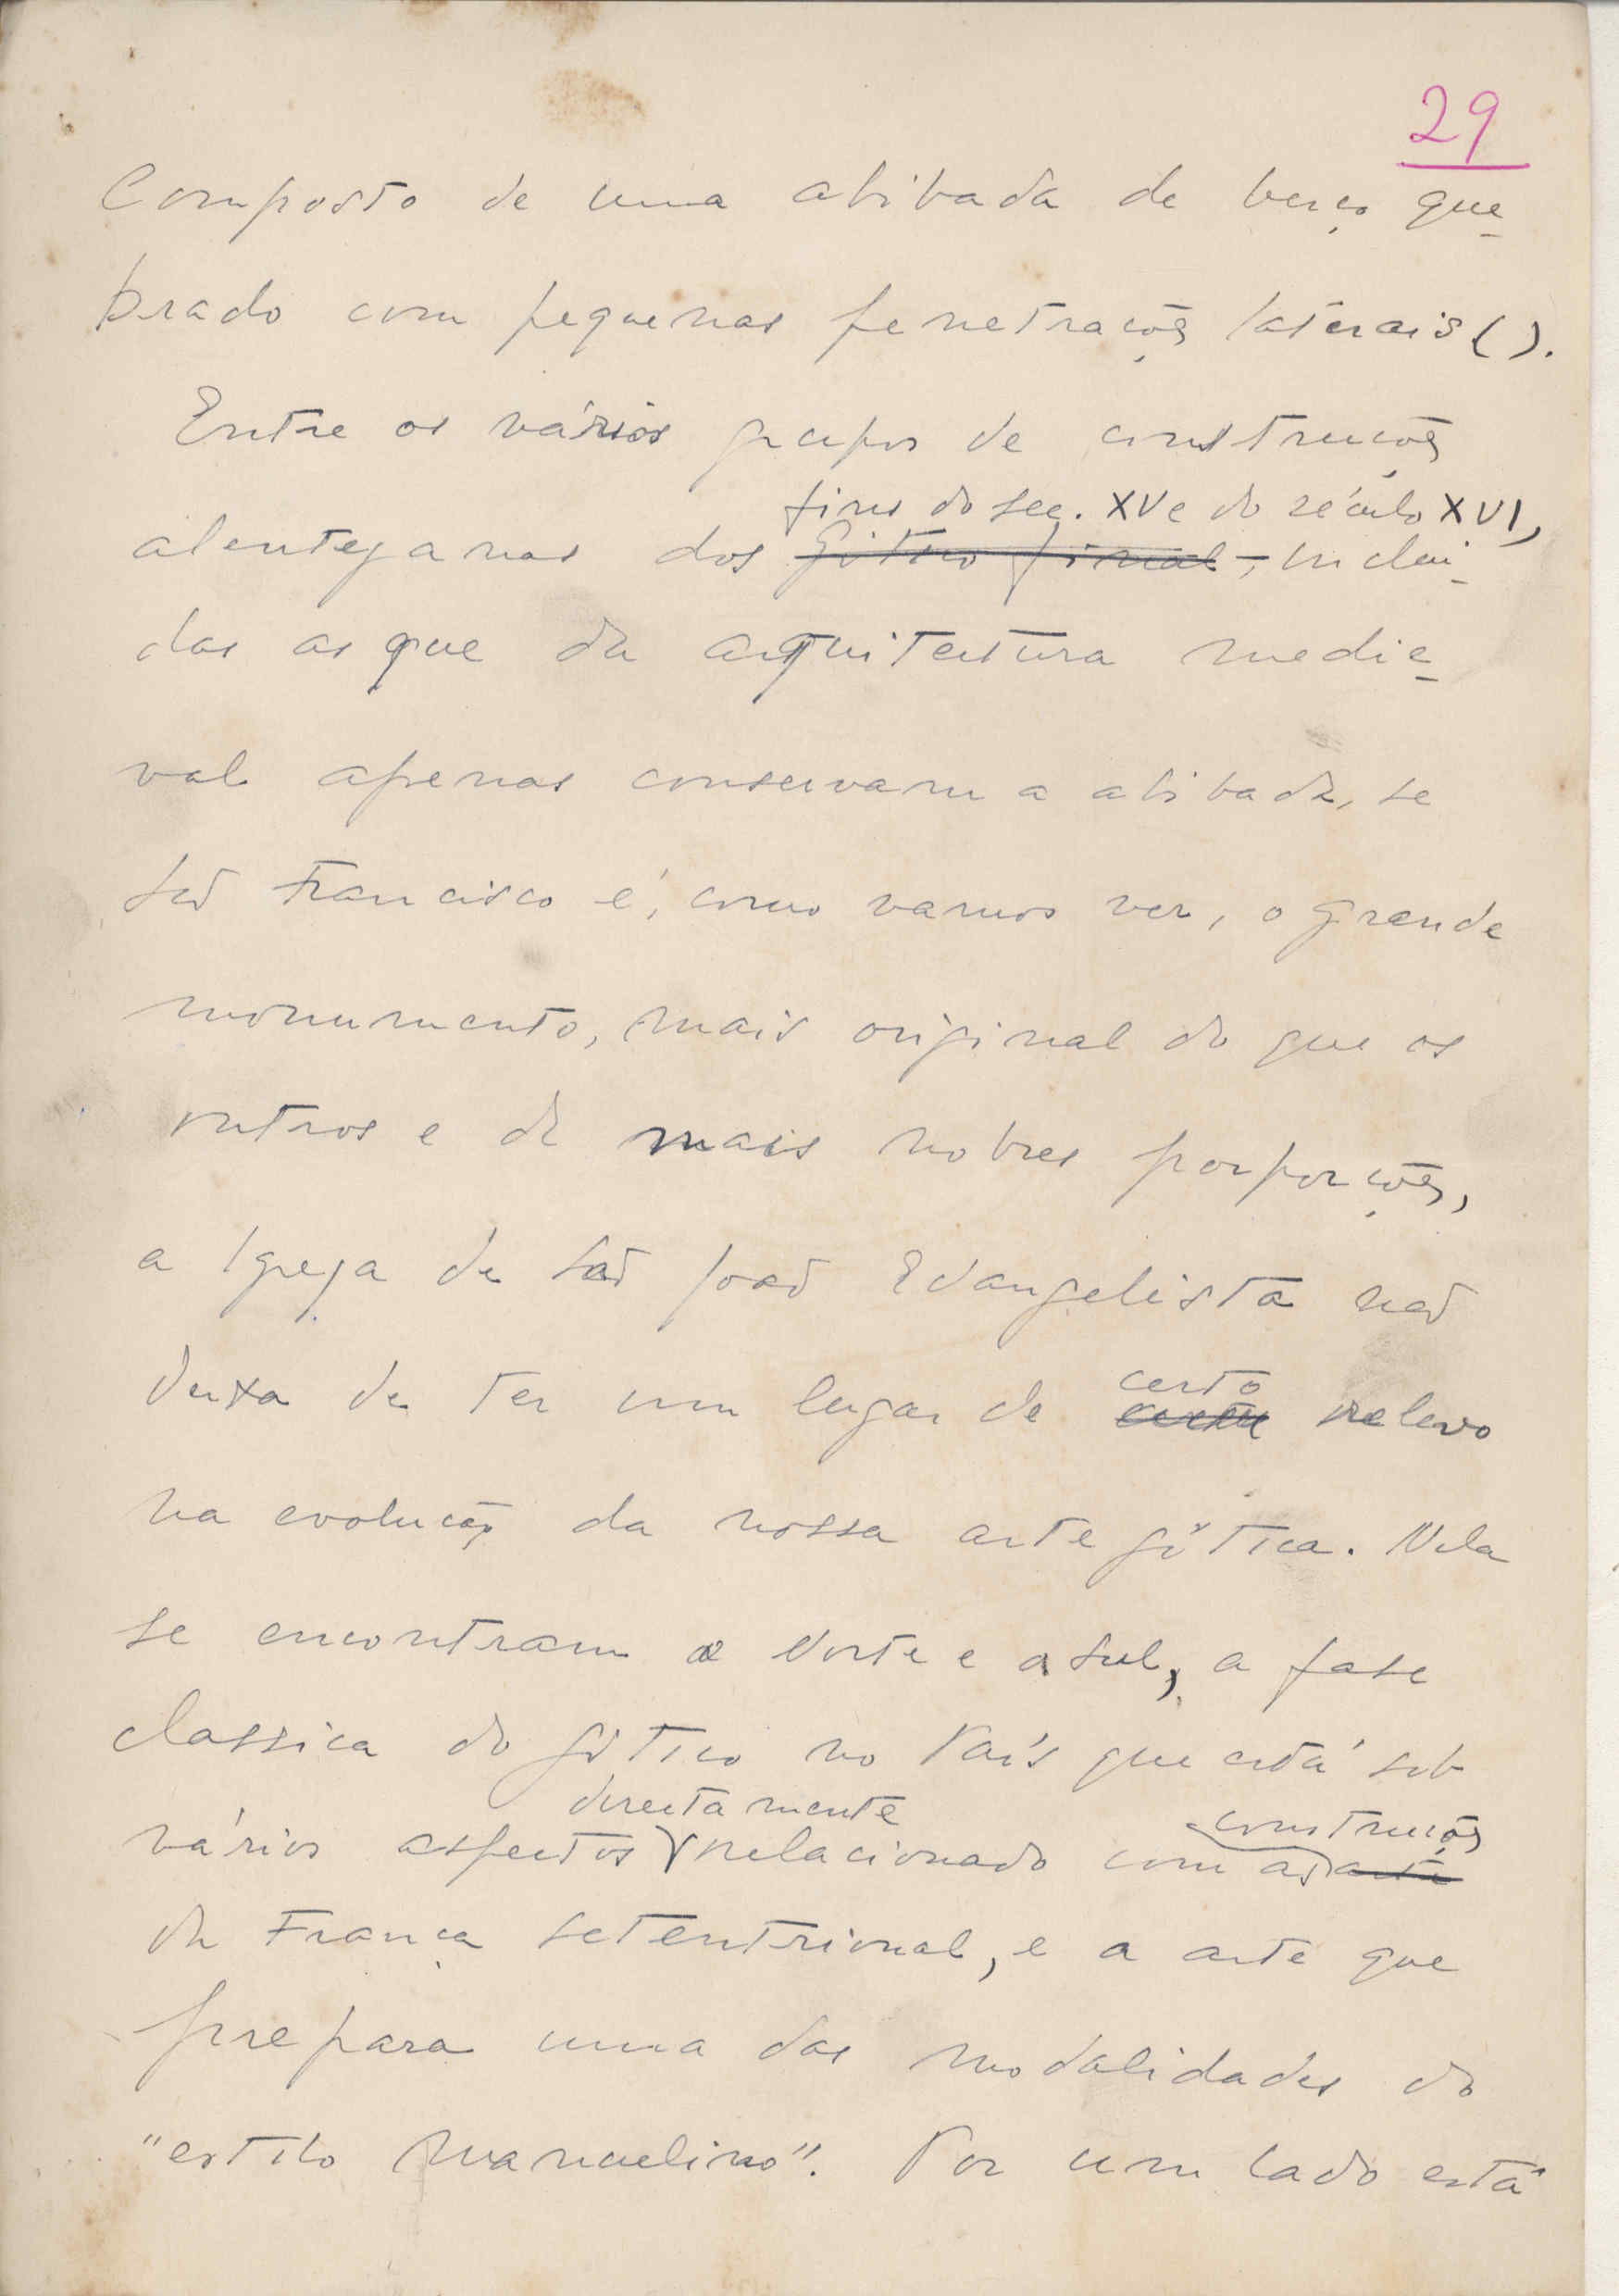 29
Composto de uma abóbada de berço que-
brado com pequenas penetrações laterais ( ).
Entre os vários grupos de construções
fins do sec. XV e do século XVI,
alentejanas dos gótico final, inclui-
das as que da arquitectura medie-
val apenas conservam a abóbada, se
São Francisco é, como vamos ver, o grande
monumento, mais original do que os
outros e de mais nobres porporções,
a Igreja de São João Evangelista não
deixa de ter um lugar de certo relevo
na evolução da nossa arte gótica. Nela
se encontram o Norte e o Sul, a fase
classica do gótico no País que está sob
directamente
construções
vários aspectos relacionado com as arte
da França setentrional, e a arte que
prepara uma das modalidades do
"estilo Manuelino". Por um lado está